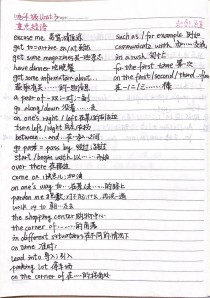 九年级 Unit 3
重点短语
excuse me 劳驾,请原谅
get to = arrive in/at 到达
get some magazines 买一些杂志
have dinner 吃晚餐
get some information about...
a pair of 一双,一对,一副
go along/down 沿着……走
on one's right / left 在某人的右/左边
turn left/right 向左/右转
between...and... 在…和…之间
go past = pass by 经过,路过
start/begin with 以……开始
over there 在那边
come on 快点儿;加油
on one's way to... 在去……的路上
pardon me 抱歉,对不起;什么,请再说一遍
walk up to 朝…走去
the shopping center 购物中心
the corner of... ……的角落
in different situations 在不同的情况下
on time 准时
lead into 导入,引入
parking lot 停车场
on the corner of 在……的拐角处
such as / for example 例如
communicate with 与……交流
in a rush 匆忙
for the first time 第一次
on the first/second/third...floor
在一/二/三……楼